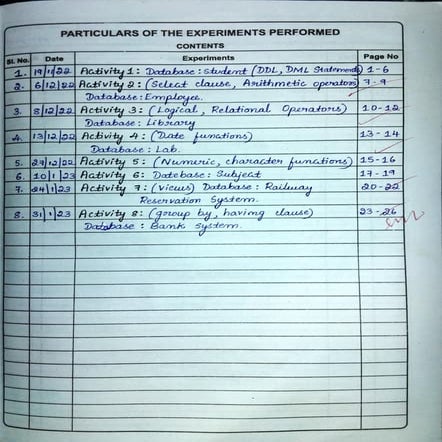 PARTICULARS OF THE EXPERIMENTS PERFORMED
CONTENTS
Sl. No. Date Experiments Page No
1. 19/11/22 Activity 1: Database: Student (DDL, DML Statements) 1-6
2. 6/12/22 Activity 2: (Select clause, Arithmetic operators) 7-9
Database: Employee.
3. 8/12/22 Activity 3: (Logical, Relational Operators) 10-12
Database: Library
4. 13/12/22 Activity 4: (Date functions) 13-14
Database: Lab.
5. 27/12/22 Activity 5: (Numeric, character functions) 15-16
6. 10/1/23 Activity 6: Datebase: Subject 17-19
7. 24/1/23 Activity 7: (views) Database: Railway 20-22
Reservation System.
8. 31/1/23 Activity 8: (group by, having clause) 23-26
Database: Bank System.